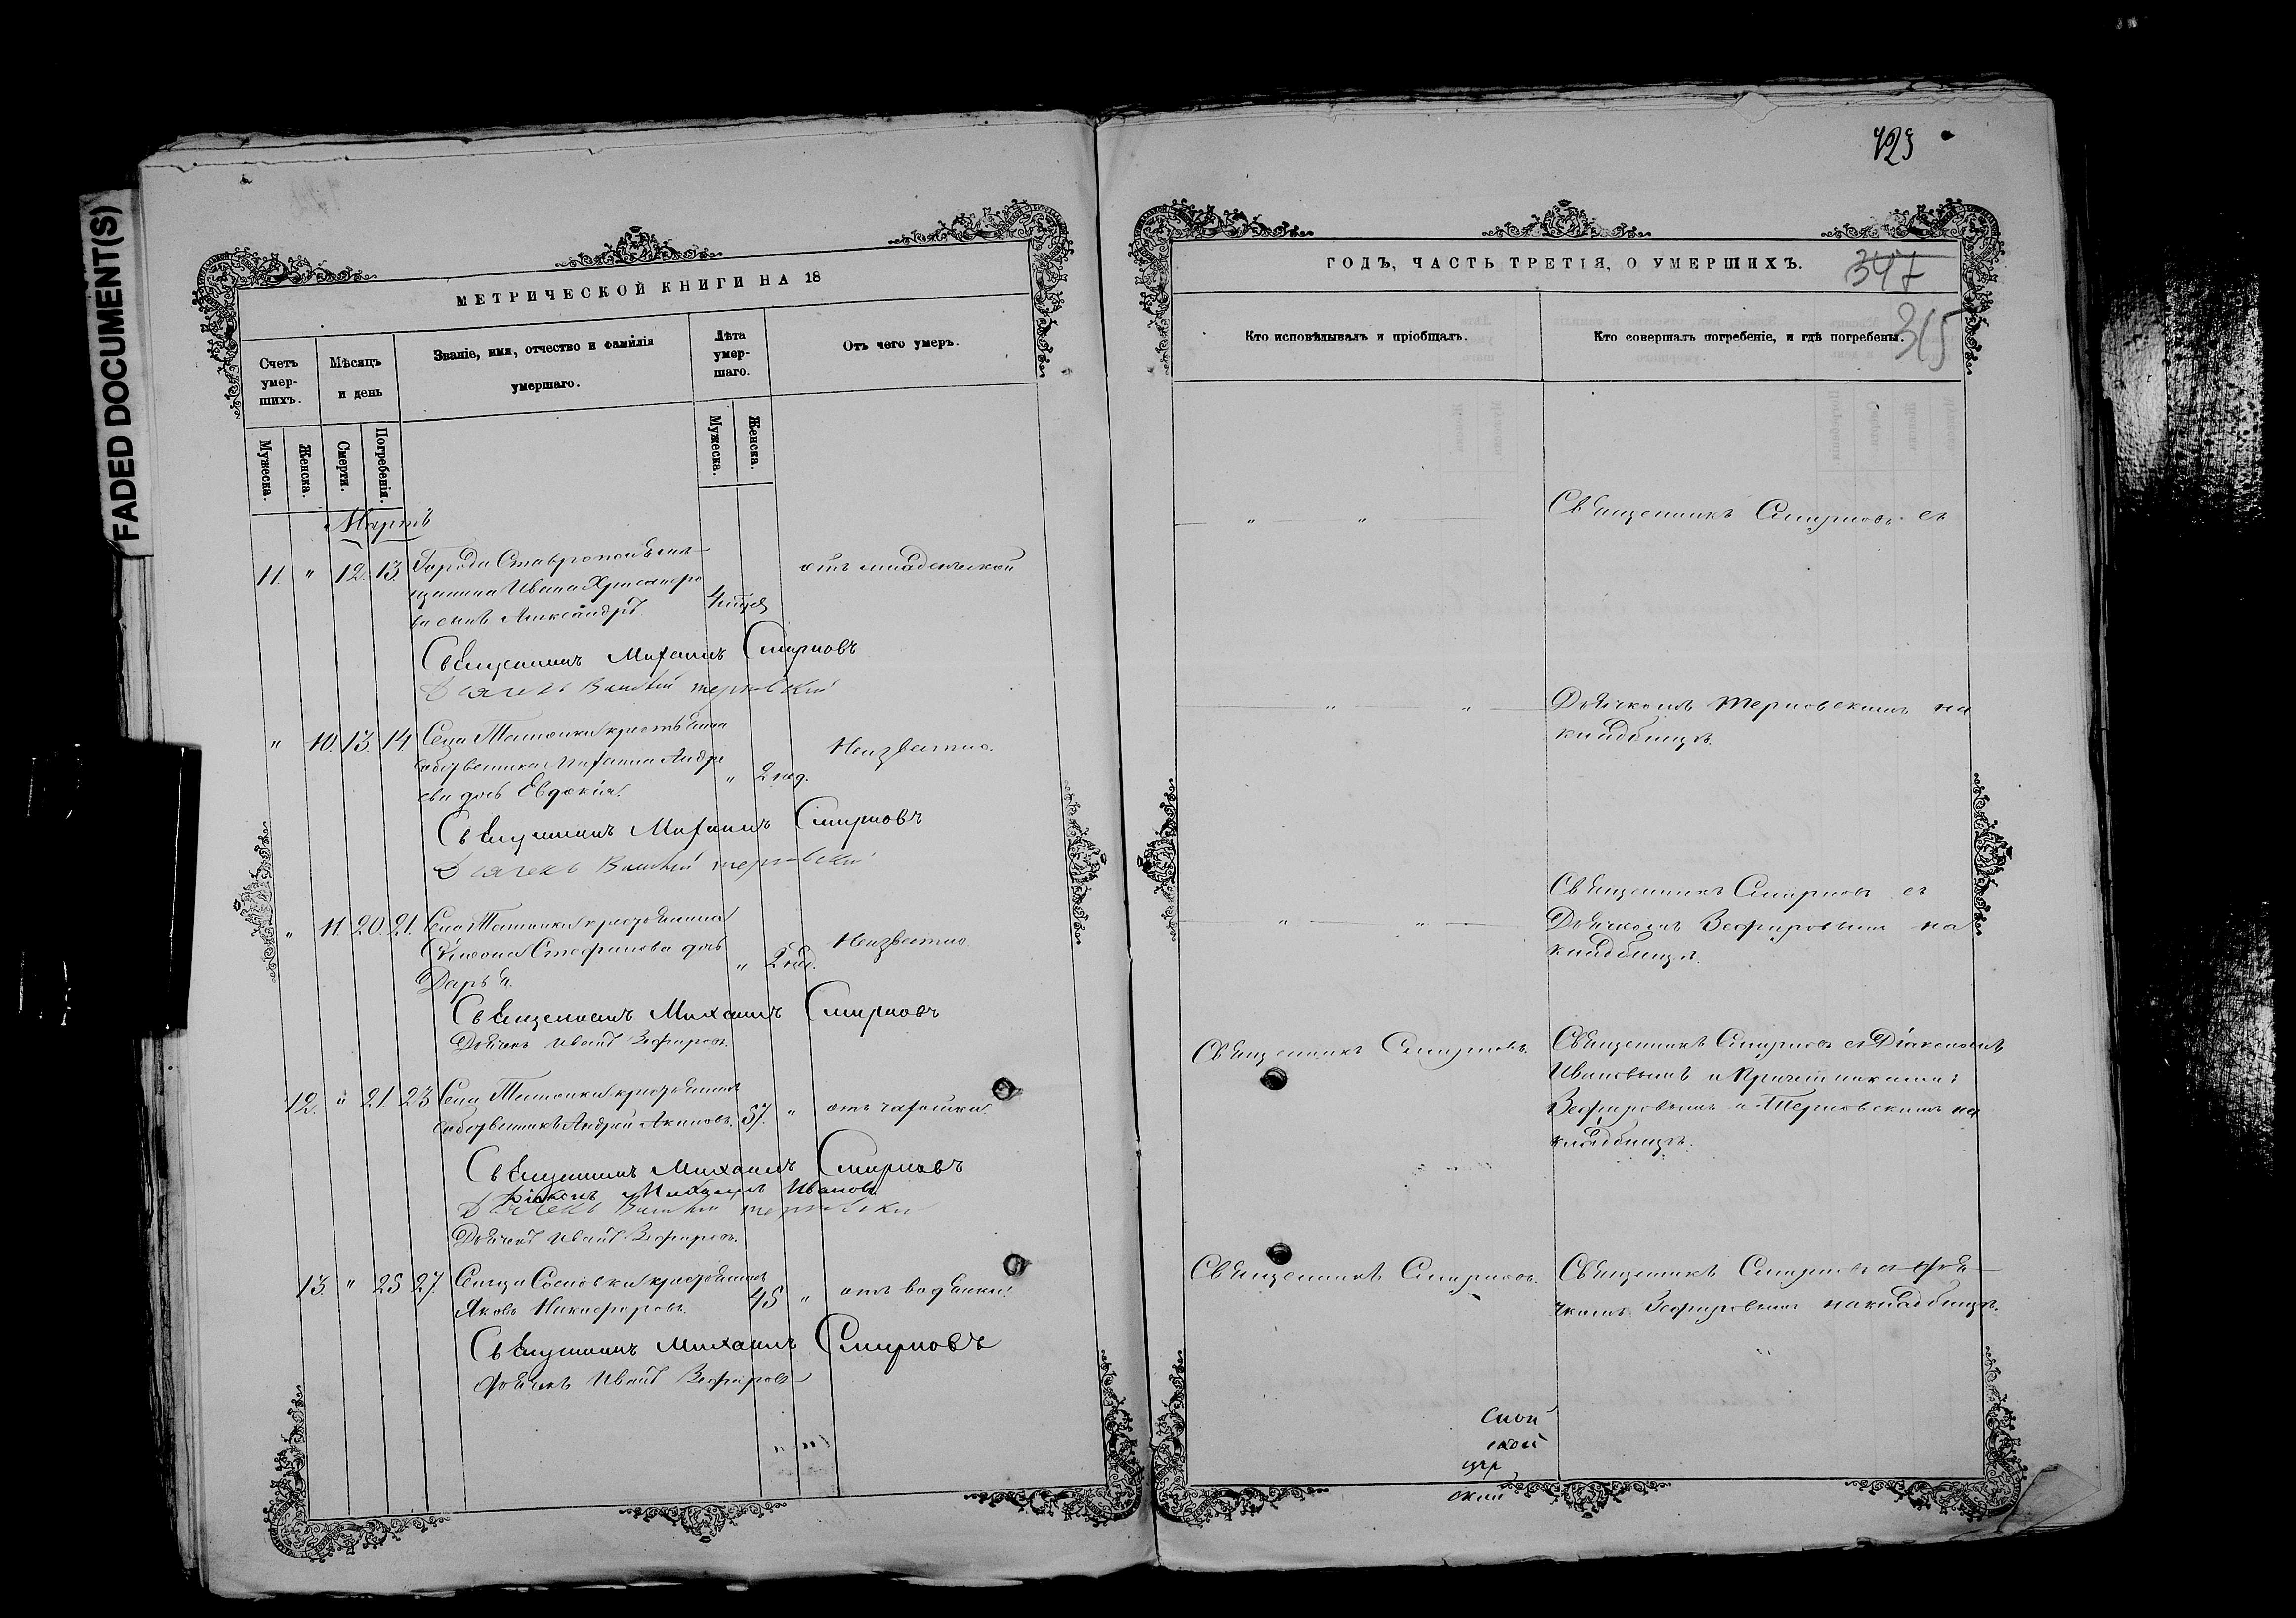 FADED DOCUMENT(S)
МЕТРИЧЕСКОЙ КНИГИ НА 18
Счетъ умер-шихъ.
Мѣсяцъ и день
Званіе, имя, отчество и фамилія умершаго.
Лѣта умер-шаго.
Отъ чего умеръ.
Мужеска.
Женска.
Смерти.
Погребенія.
Мужеска.
Женска.
Мартъ
11. " 12. 13.
Города Ставрополя мѣ-
щанина Ивана
сынъ Александръ.
отъ младенческой
Священникъ Михаилъ Смирновъ
Дьячекъ Василій Терновскій
" 10. 13. 14
Села Ташолки крестьянина
собственника Михаила Андре
ева дочь Евдокія.
" 2 нед.
Неизвестно.
Священникъ Михаилъ Смирновъ
Дьячекъ Василій Терновскій
" 11. 20. 21.
Села Ташолки крестьянина
Стефанова дочь
Дарья.
" 2 нед.
Неизвестно
Священникъ Михаилъ Смирновъ
Дьячекъ Иванъ Зефировъ.
12. " 21. 23.
Села Ташолки крестьянинъ
собственникъ Андрей Акимовъ.
57. "
отъ чахотки.
Священникъ Михаилъ Смирновъ
Діаконъ Михаилъ Ивановъ
Дьячекъ Василій Терновскій
Дьячекъ Иванъ Зефировъ.
13. " 25 27.
Сельца Сосновки крестьянинъ
Яковъ Никифоровъ.
45 "
отъ водянки.
Священникъ Михаилъ Смирновъ
Дьячекъ Иванъ Зефировъ
423
ГОДЪ, ЧАСТЬ ТРЕТІЯ, О УМЕРШИХЪ.
347
315
Кто исповѣдывалъ и пріобщалъ.
Кто совершалъ погребеніе, и гдѣ погребены.
" "
Священникъ Смирновъ съ
" "
Дьячкомъ Терновскимъ на
кладбищѣ.
" "
Священникъ Смирновъ съ
Дьячкомъ Зефировымъ на
кладбищѣ.
Священникъ Смирновъ.
Священникъ Смирновъ съ Діакономъ
Ивановымъ и Причетниками:
Зефировымъ и Терновскимъ на
кладбищѣ.
Священникъ Смирновъ.
Священникъ Смирновъ съ дья-
чкомъ Зефировымъ на кладбищѣ.